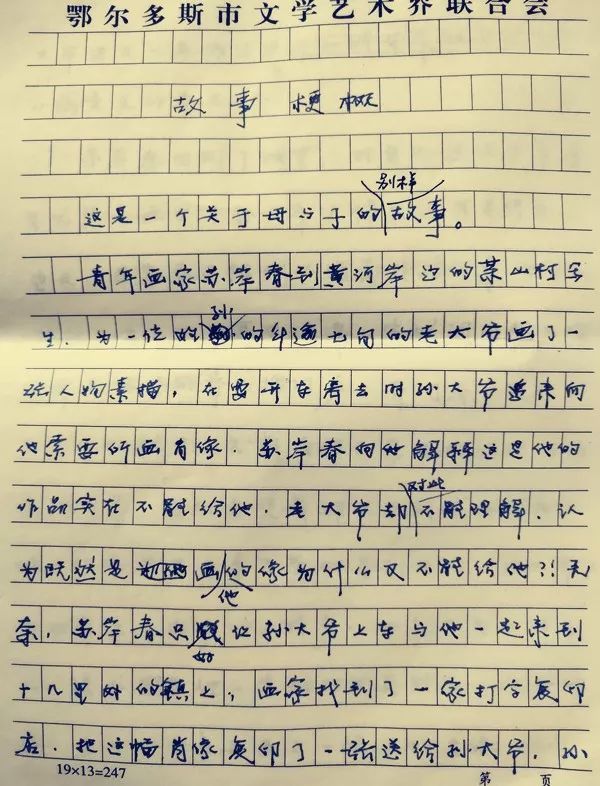 鄂尔多斯市文学艺术界联合会
故事梗概
这是一个关于母与子的别样故事。
青年画家苏岸春到黄河岸边的某山村写
生.为一位姓孙的年逾七旬的老大爷画了一
张人物素描,在要开车离去时孙大爷追来向
他索要所画肖像.苏岸春向他解释这是他的
作品实在不能给他.老大爷却对此不能理解.认
为既然是画他的像为什么又不能给他?!无
奈,苏岸春只好让孙大爷上车与他一起来到
十几里外的镇上,画家找到了一家打字复印
店.把这幅肖像复印了一张送给孙大爷.孙
19×13=247 第 页